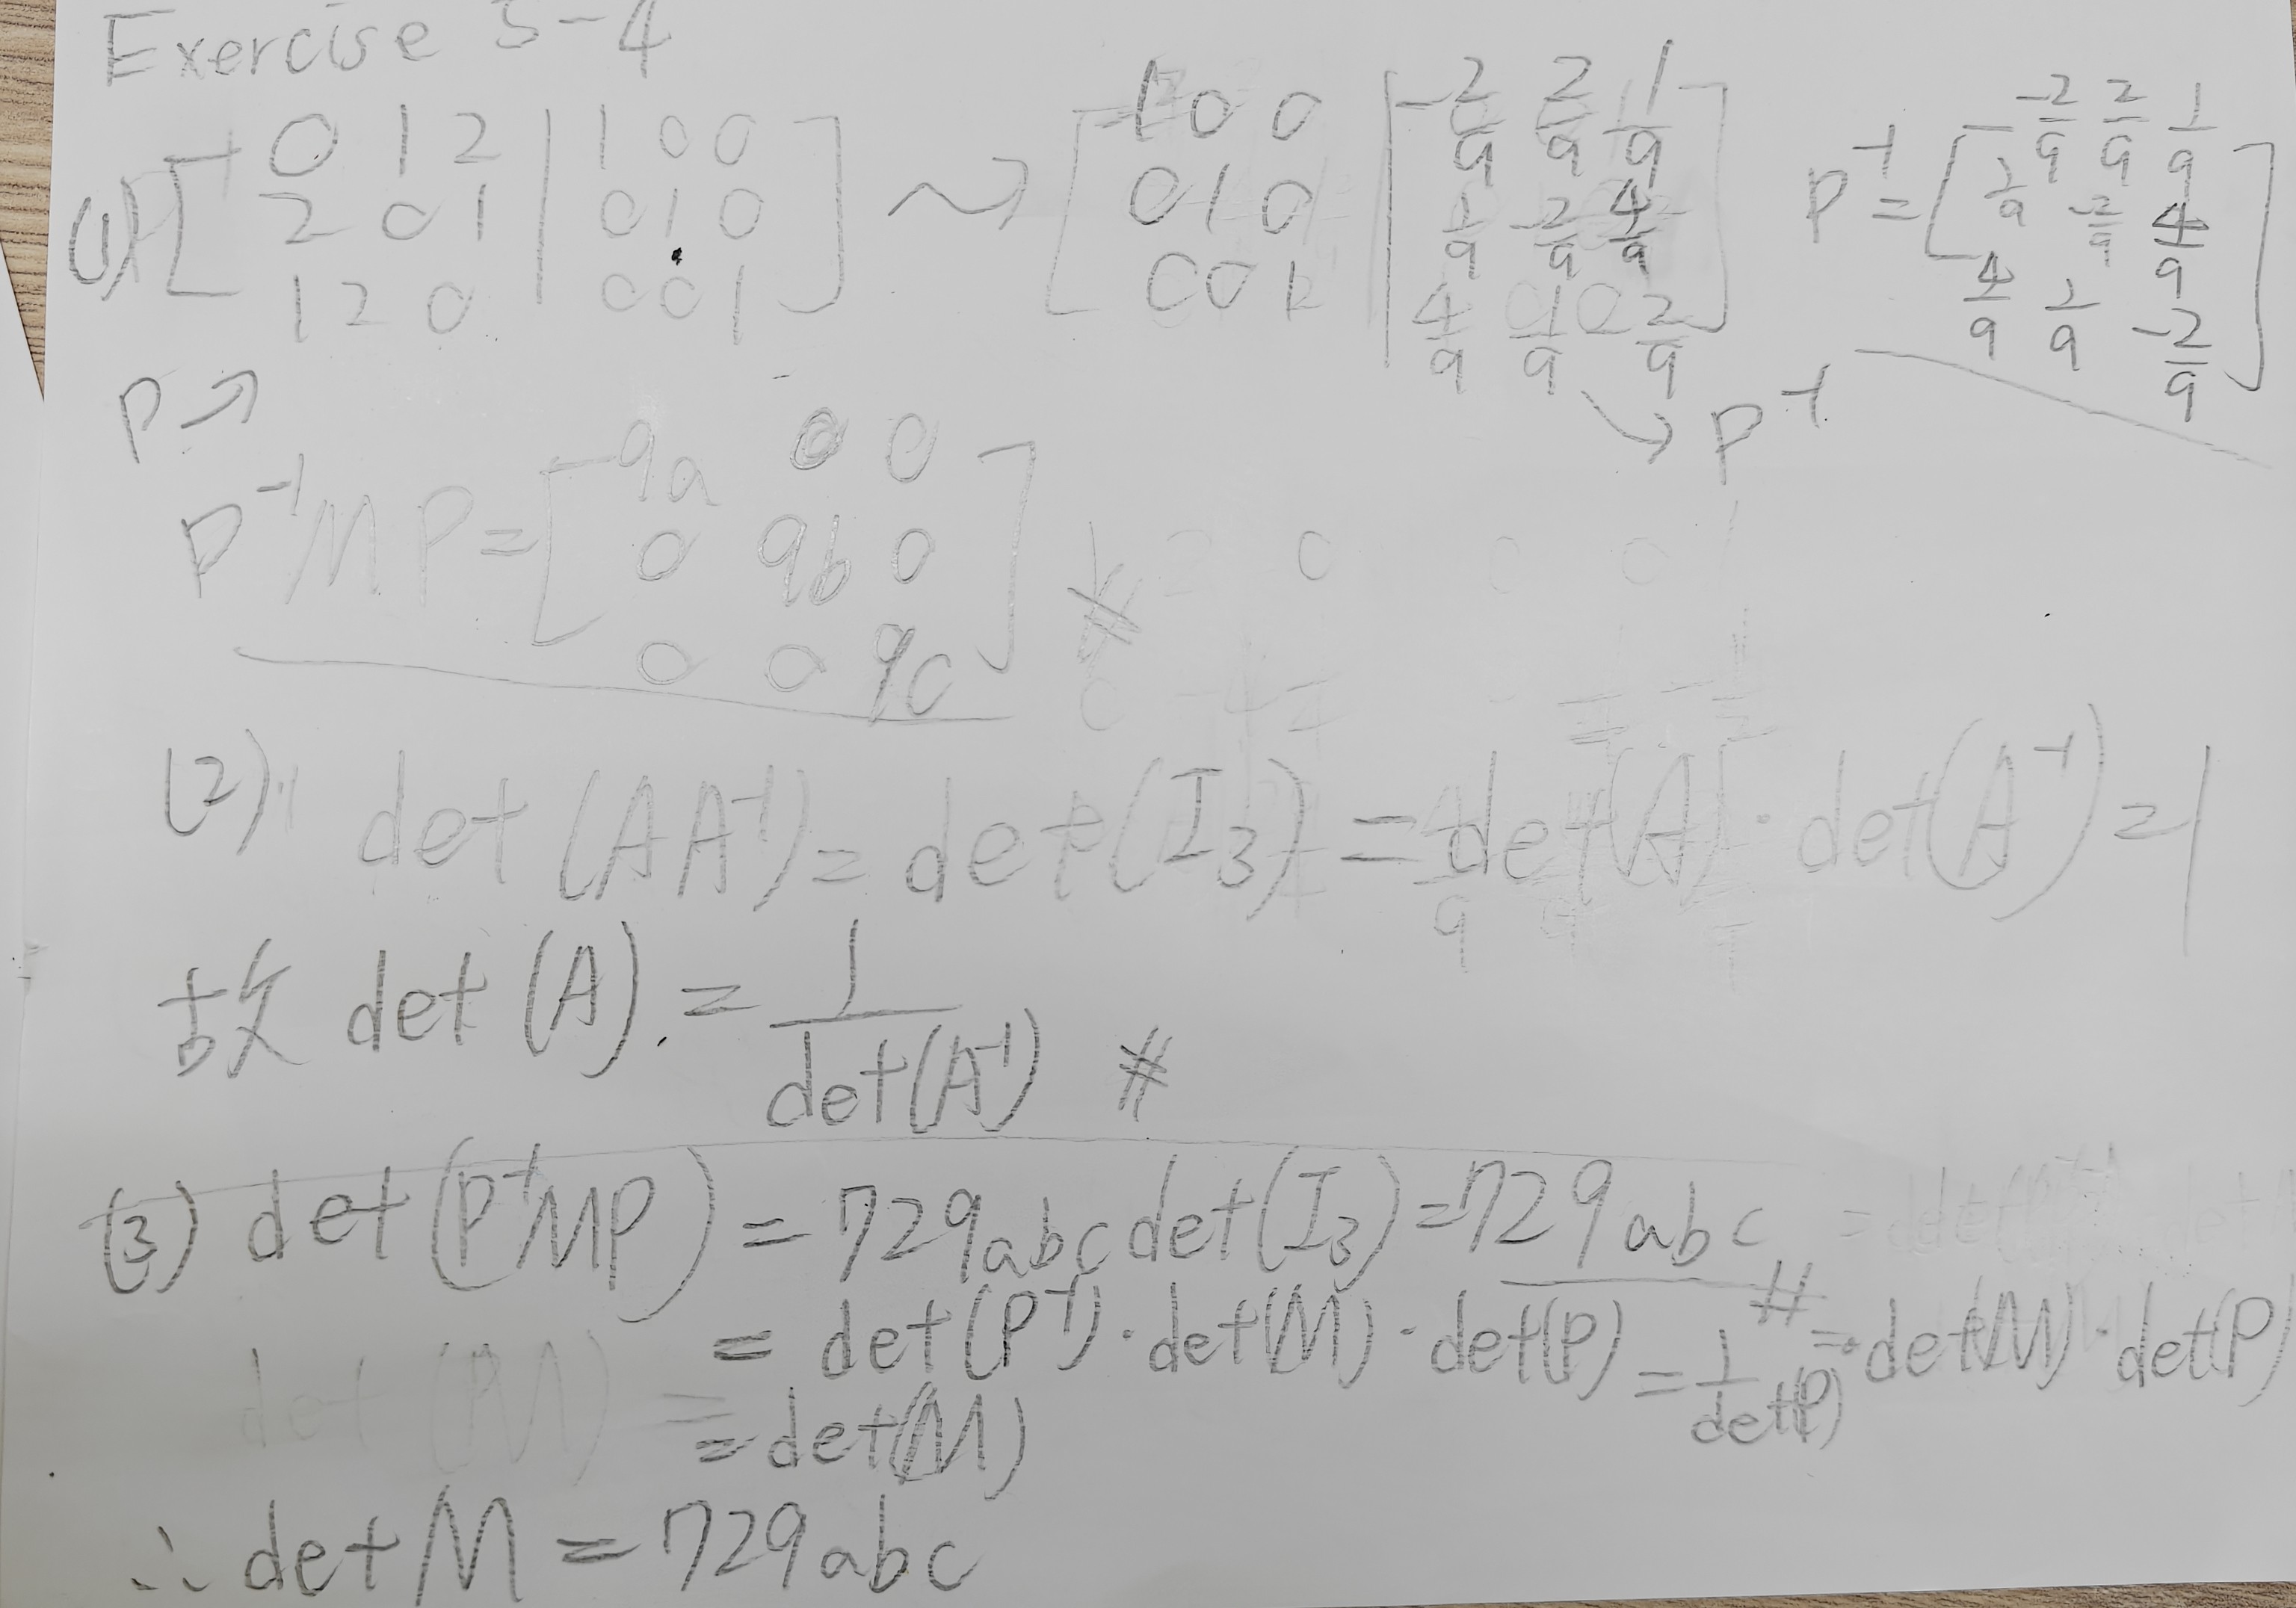 Exercise 5-4
(1) [ 0 1 2 | 1 0 0 ] ~> [ 1 0 0 | -2/9 2/9 1/9 ] P⁻¹ = [ -2/9 2/9 1/9 ]
[ 2 0 1 | 0 1 0 ] [ 0 1 0 | 1/9 -2/9 4/9 ] [ 1/9 -2/9 4/9 ]
[ 1 2 0 | 0 0 1 ] [ 0 0 1 | 4/9 1/9 2/9 ] [ 4/9 1/9 -2/9 ]
P↗ ↘ P⁻¹
P⁻¹MP = [ 9a 0 0 ]
[ 0 9b 0 ] #
[ 0 0 9c ]
(2) det(AA⁻¹) = det(I₃) = det(A)·det(A⁻¹) = 1
故 det(A) = 1/det(A⁻¹) #
(3) det(P⁻¹MP) = 729abc det(I₃) = 729abc #
= det(P⁻¹)·det(M)·det(P) = 1/det(P)·det(M)·det(P)
= det(M)
∴ det M = 729abc